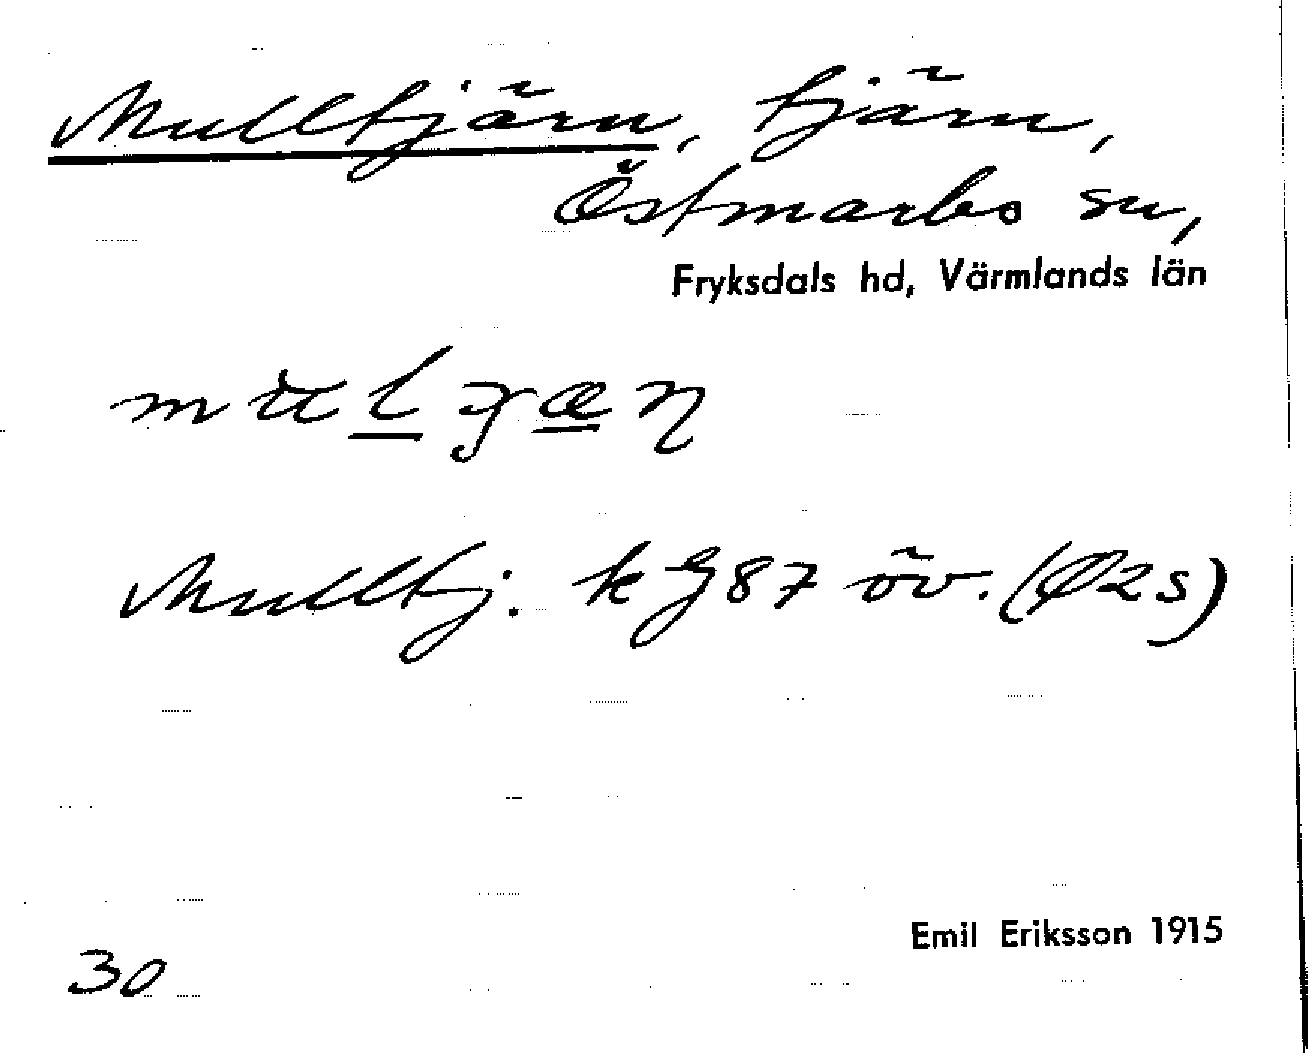 Mulltjärn, tjärn,
Östmarks sn,
Fryksdals hd, Värmlands län
Mulltj. k G87 öv. (Ö2s)
Emil Eriksson 1915
30